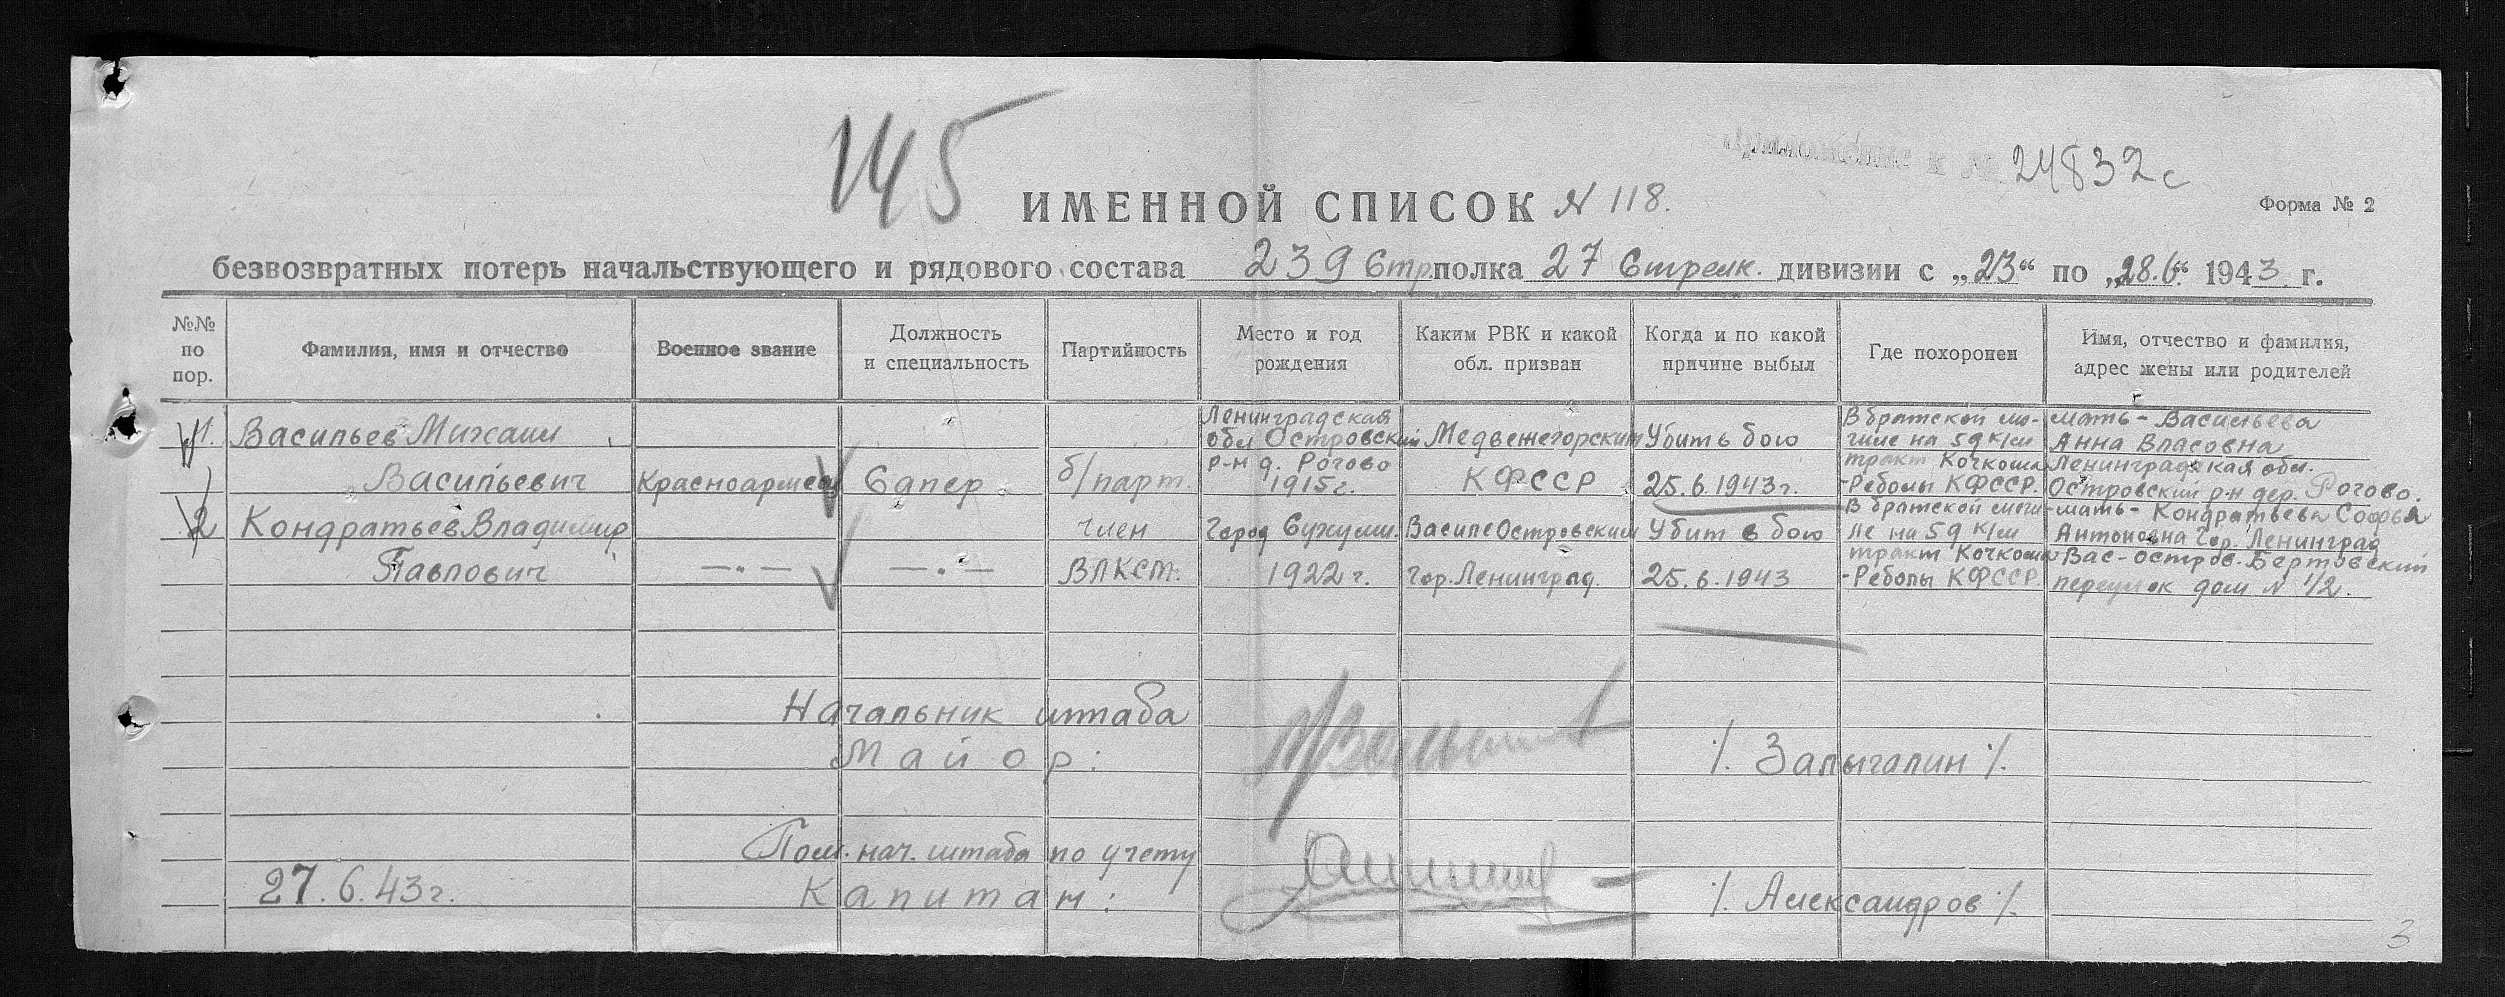 145
Приложение к № 24832с
ИМЕННОЙ СПИСОК № 118.
Форма № 2
безвозвратных потерь начальствующего и рядового состава 239 Стр. полка 27 Стрелк. дивизии с „23“ по „28.6“ 1943 г.
№№ по пор.
Фамилия, имя и отчество
Военное звание
Должность и специальность
Партийность
Место и год рождения
Каким РВК и какой обл. призван
Когда и по какой причине выбыл
Где похоронен
Имя, отчество и фамилия, адрес жены или родителей
1.
Васильев Михаил
Васильевич
Красноармеец
Сапер
б/парт.
Ленинградская
обл Островский
р-н д. Рогово
1915г.
Медвежегорским
КФССР
Убит в бою
25.6.1943г.
В братской мо-
гиле на 59 к/м
тракт Кочкома
-Реболы КФССР.
мать - Васильева
Анна Власовна
Ленинградская обл.
Островский р-н дер. Рогово.
2
Кондратьев Владимир
Павлович
—·—
—·—
член
ВЛКСМ.
Город Сухуми.
1922 г.
Василеостровским
гор. Ленинград.
Убит в бою
25.6.1943
В братской моги-
ле на 59 к/м
тракт Кочкома
-Реболы КФССР.
мать - Кондратьева Софья
Антоновна гор. Ленинград
Вас-остров. Бертовский
переулок дом № 1/2.
Начальник штаба
Майор:
/. Залыгалин /.
Пом. нач. штаба по учету
Капитан:
/. Александров /.
27.6.43г.
3